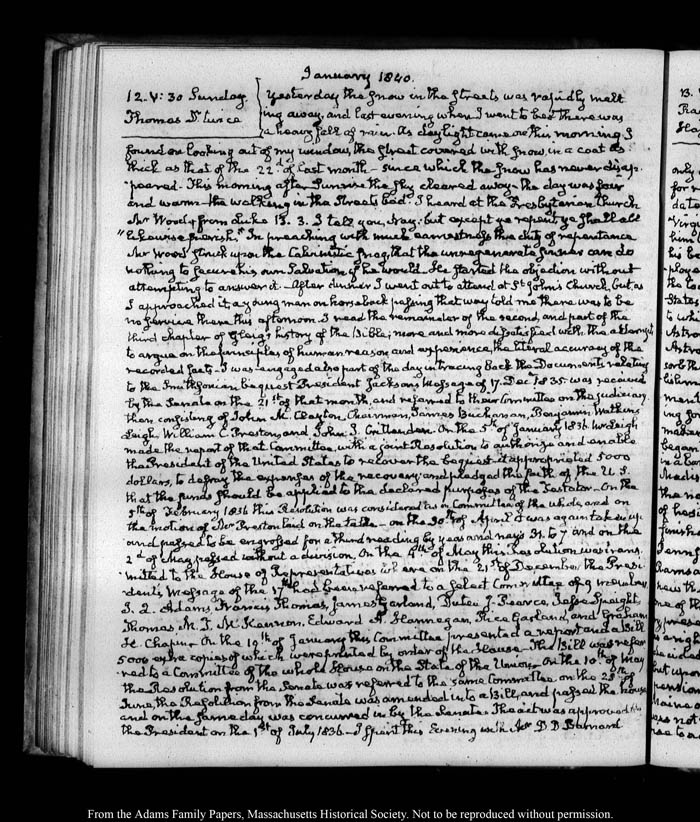 January 1840.
12. V: 30 Sunday. Yesterday the Snow in the Streets was rapidly melt
Thomas Dr. twice ing away, and last evening when I went to bed there was
a heavy fall of rain. As daylight came on this morning I
found on looking out of my window, the Street covered with Snow, in a coat as
thick as that of the 22d. of last month - since which the Snow has never disap-
peared. This morning after Sunrise the Sky cleared away - the day was fair
and warm - the walking in the Streets bad. I heard at the Presbyterian Church
Mr Wood, from Luke 13. 3. I tell you, Nay: but except ye repent, ye shall all
"likewise perish." In preaching with much earnestness this duty of repentance
Mr Wood struck upon the Calvinistic snag, that the unregenerate Sinner can do
nothing to secure his own Salvation if he would. He started the objection without
attempting to answer it - After dinner I went out to attend at St. John's Church, but as
I approached it, a young man on horseback passing that way told me there was to be
no service there this afternoon. I read the remainder of the second, and part of the
third chapter of Gleig's history of the Bible; more and more dissatisfied with the attempt
to argue on the principles of human reason and experience, the literal accuracy of the
recorded facts - I was engaged also part of the day in tracing back the Documents relating
to the Smithsonian bequest. President Jackson's Message of 17. Dec 1835 was received
by the Senate on the 21st of that month, and referred to their Committee on the judiciary.
then consisting of John M. Clayton, Chairman, James Buchanan, Benjamin Watkins
Leigh, William C. Preston, and John J. Crittenden. On the 5th of January 1836. Mr Leigh
made the report of that Committee, with a joint Resolution to authorize and enable
the President of the United States to recover the bequest. it appropriated 5000
dollars, to defray the expenses of the recovery and pledged the faith of the U.S.
that the funds should be applied to the declared purposes of the Testator. On the
5th of February 1836 this Resolution was considered as in Committee of the whole, and on
the motion of Mr Preston laid on the table - on the 30th of April it was again taken up
and passed to be engrossed for a third reading by yeas and nays 31. to 7 and on the
2d of May, passed without a division. On the 4th of May this Resolution was trans.
mitted to the House of Representatives where on the 21st of December the Presi-
dent's Message of the 17th had been referred to a Select Committee of 9 members,
J. Q. Adams, Francis Thomas, James Garland, Dutee J. Pearce, Jesse Speight,
Thomas M. T. McKennon, Edward A. Hannegan, Rice Garland, and Graham
H. Chapin. On the 19th of January this Committee presented a report and a Bill
5000 extra copies of which were printed by order of the House - The Bill was refer
red to a Committee of the whole House on the State of the Union - On the 10th of May
the Resolution from the Senate was referred to the same Committee. on the 25th of
June, the Resolution from the Senate was amended into a Bill, and passed the house
and on the same day was concurred in by the Senate. The act was approved by
the President on the 1st of July 1836 - I spent this Evening with Mr D. D. Barnard
From the Adams Family Papers, Massachusetts Historical Society. Not to be reproduced without permission.